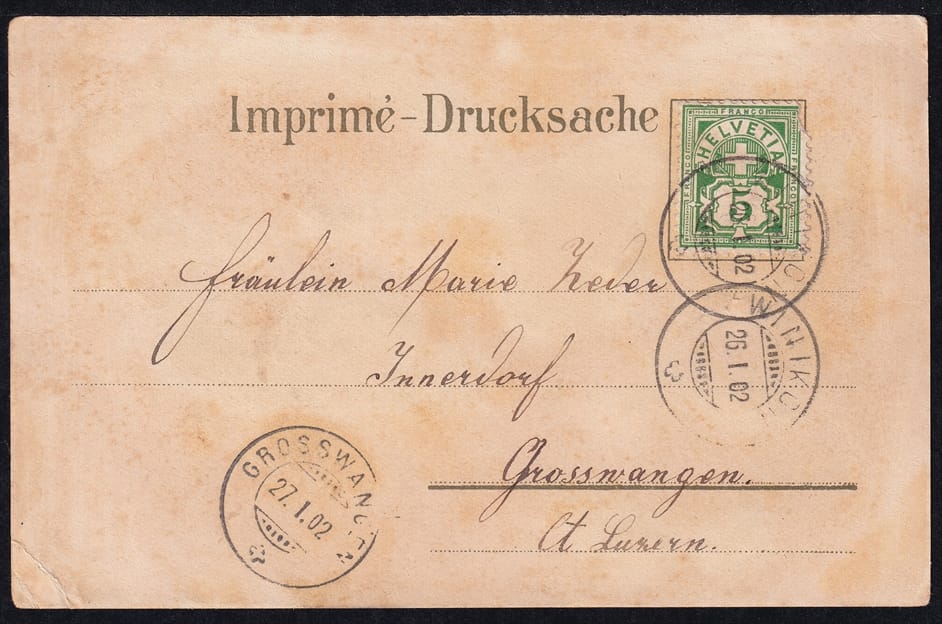 Imprimé-Drucksache
FRANCO
FRANCO
FRANCO
HELVETIA
5
I.02
WINIKON
26.I.02
Fräulein Marie Zeder
Innerdorf
Grosswangen.
Ct Luzern.
GROSSWANGEN
27.I.02